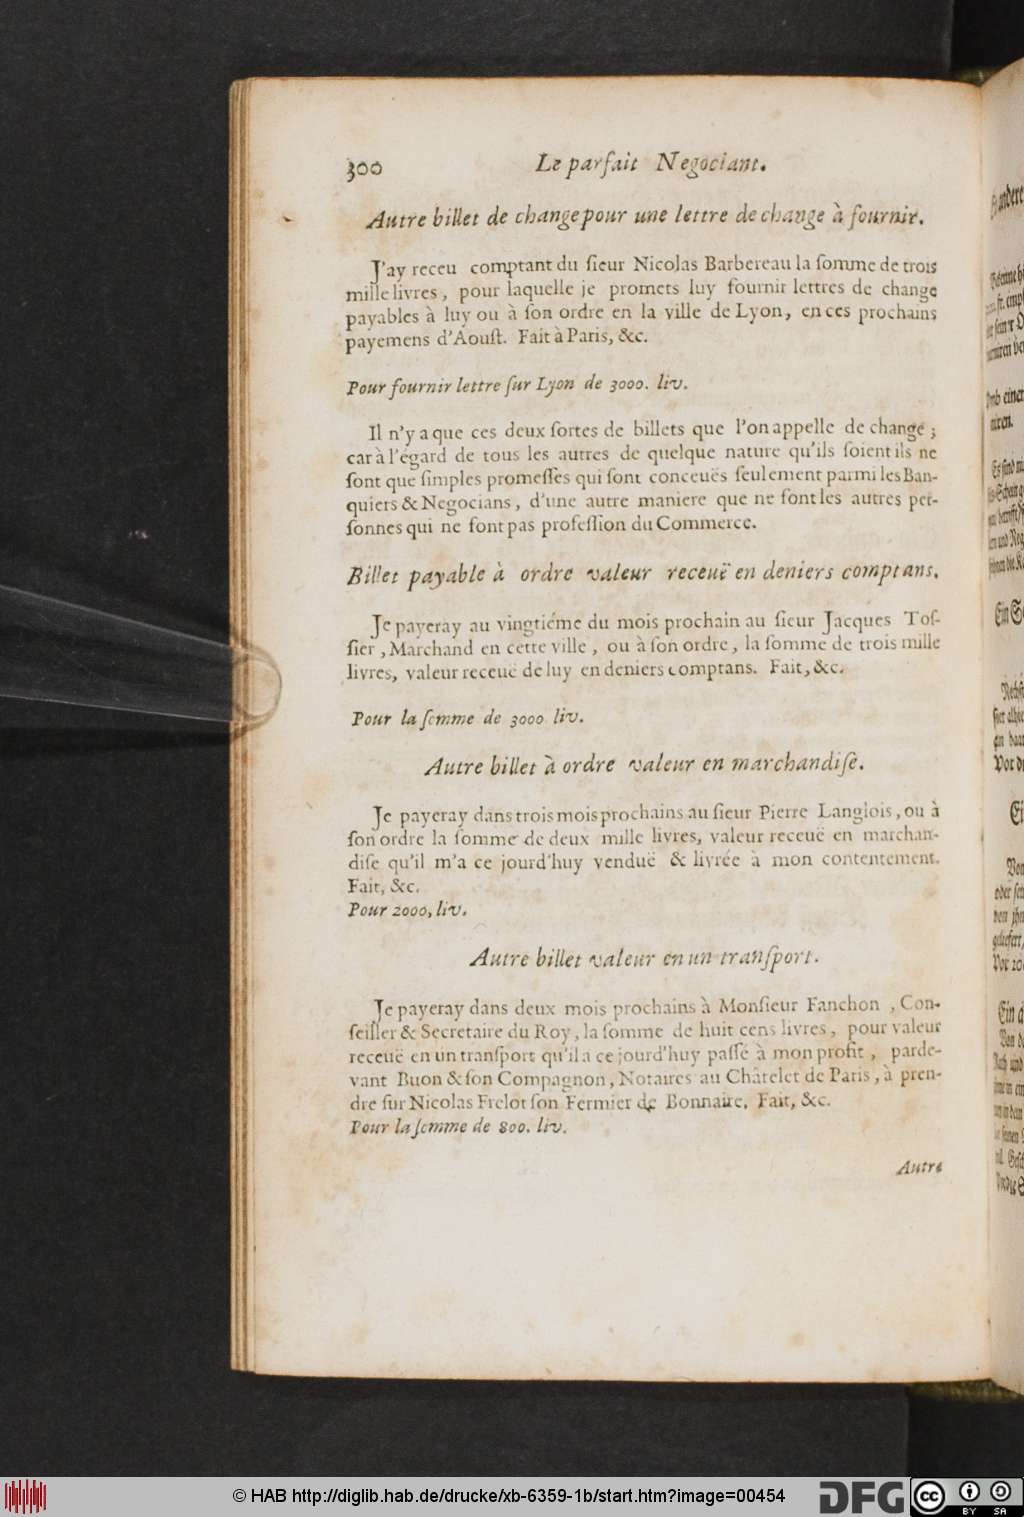 300 Le parfait Negociant.
Autre billet de change pour une lettre de change à fournir.
J'ay receu comptant du sieur Nicolas Barbereau la somme de trois
mille livres, pour laquelle je promets luy fournir lettres de change
payables à luy ou à son ordre en la ville de Lyon, en ces prochains
payemens d'Aoust. Fait à Paris, &c.
Pour fournir lettre sur Lyon de 3000. liv.
Il n'y a que ces deux sortes de billets que l'on appelle de change;
car à l'égard de tous les autres de quelque nature qu'ils soient ils ne
sont que simples promesses qui sont conceuës seulement parmi les Ban-
quiers & Negocians, d'une autre maniere que ne font les autres per-
sonnes qui ne font pas profession du Commerce.
Billet payable à ordre valeur receuë en deniers comptans.
Je payeray au vingtiéme du mois prochain au sieur Jacques Tos-
sier, Marchand en cette ville, ou à son ordre, la somme de trois mille
livres, valeur receuë de luy en deniers comptans. Fait, &c.
Pour la somme de 3000 liv.
Autre billet à ordre valeur en marchandise.
Je payeray dans trois mois prochains au sieur Pierre Langlois, ou à
son ordre la somme de deux mille livres, valeur receuë en marchan-
dise qu'il m'a ce jourd'huy venduë & livrée à mon contentement.
Fait, &c.
Pour 2000, liv.
Autre billet valeur en un transport.
Je payeray dans deux mois prochains à Monsieur Fanchon, Con-
seiller & Secretaire du Roy, la somme de huit cens livres, pour valeur
receuë en un transport qu'il a ce jourd'huy passé à mon profit, parde-
vant Buon & son Compagnon, Notaires au Châtelet de Paris, à pren-
dre sur Nicolas Frelot son Fermier de Bonnaire, Fait, &c.
Pour la somme de 800. liv.
Autre
© HAB http://diglib.hab.de/drucke/xb-6359-1b/start.htm?image=00454
DFG
cc BY SA